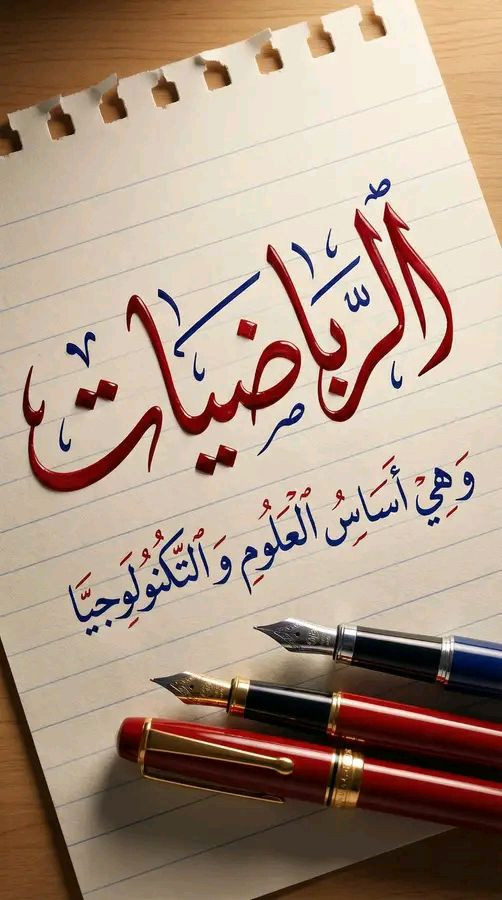 الرياضيات
وَهِيْ أَسَاسِ الْعَلُومِ وَ التَّكْنُولُوَجيَّا